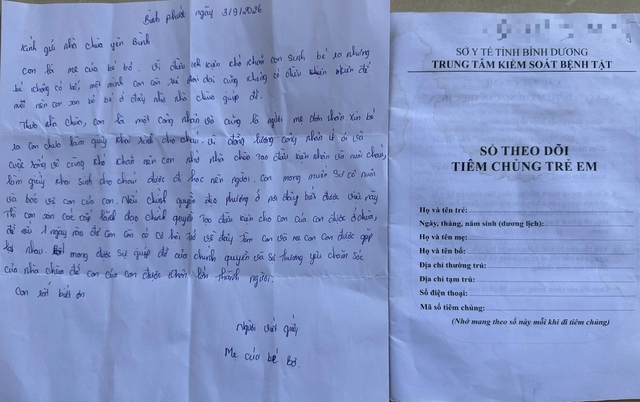 Bình phước ngày 3/9/2026
Kính gửi nhà chùa yên Bình
Con là mẹ của bé bỏ. Vì điều kiện khó khăn con sinh bé ra nhưng
bé không có bố, một mình con còn cũng không có điều kiện để
nuôi nên con bỏ bé ở đây nhờ nhà chùa giúp đỡ.
Thưa nhà chùa, con là một công nhân và cũng là người mẹ đơn thân xin bé
ra con chưa làm giấy khai sinh cho cháu. Vì đồng lương công nhân ít ỏi và
cuộc sống vô cùng khó khăn nên con nhờ nhà chùa tạo điều kiện nhận và nuôi cháu,
làm giấy khai sinh cho cháu được đi học nên người. Con mong muốn sư cô nuôi
và bảo vệ con của con. Nếu chính quyền địa phương ở nơi đây biết được việc này
Thì con xin các cấp lãnh đạo chính quyền tạo điều kiện cho con của con được ở chùa,
để sau 1 ngày nào đó con còn có cơ hội trở về đây tìm con và mẹ con con được gặp
lại nhau. mong được sự giúp đỡ của chính quyền và sự thương yêu chăm sóc
của nhà chùa để con của con được khôn lớn thành người.
Con rất biết ơn
Người viết giấy
Mẹ của bé bỏ.
SỞ Y TẾ TỈNH BÌNH DƯƠNG
TRUNG TÂM KIỂM SOÁT BỆNH TẬT
SỔ THEO DÕI
TIÊM CHỦNG TRẺ EM
Họ và tên trẻ:
Ngày, tháng, năm sinh (dương lịch):
Họ và tên mẹ:
Họ và tên bố:
Địa chỉ thường trú:
Địa chỉ tạm trú:
Số điện thoại:
Mã số tiêm chủng:
(Nhớ mang theo sổ này mỗi khi đi tiêm chủng)